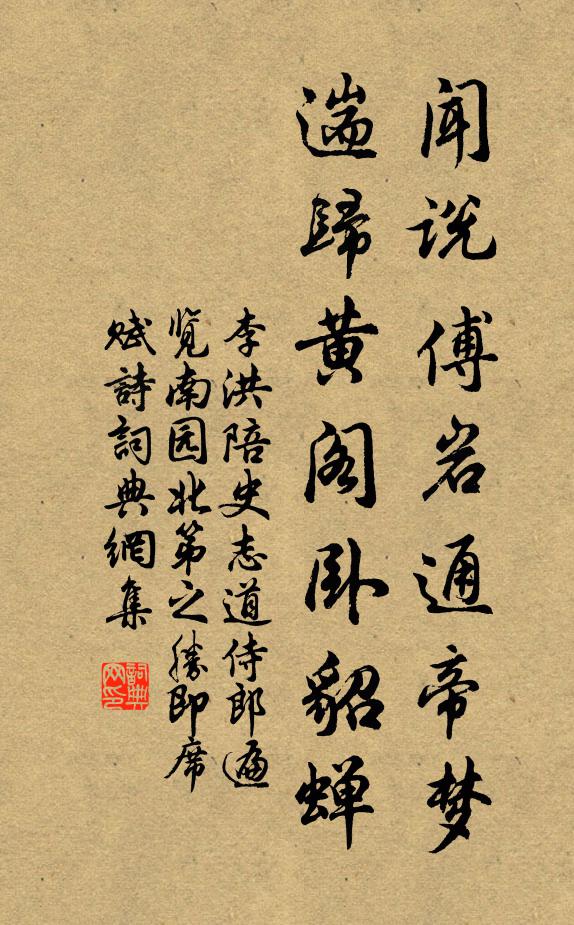 闻说傅岩通帝梦
遄歸黄阁卧貂蝉
李洪陪史志道侍郎遍
览南园北第之勝即席
赋詩詞典網集
詞典
网印